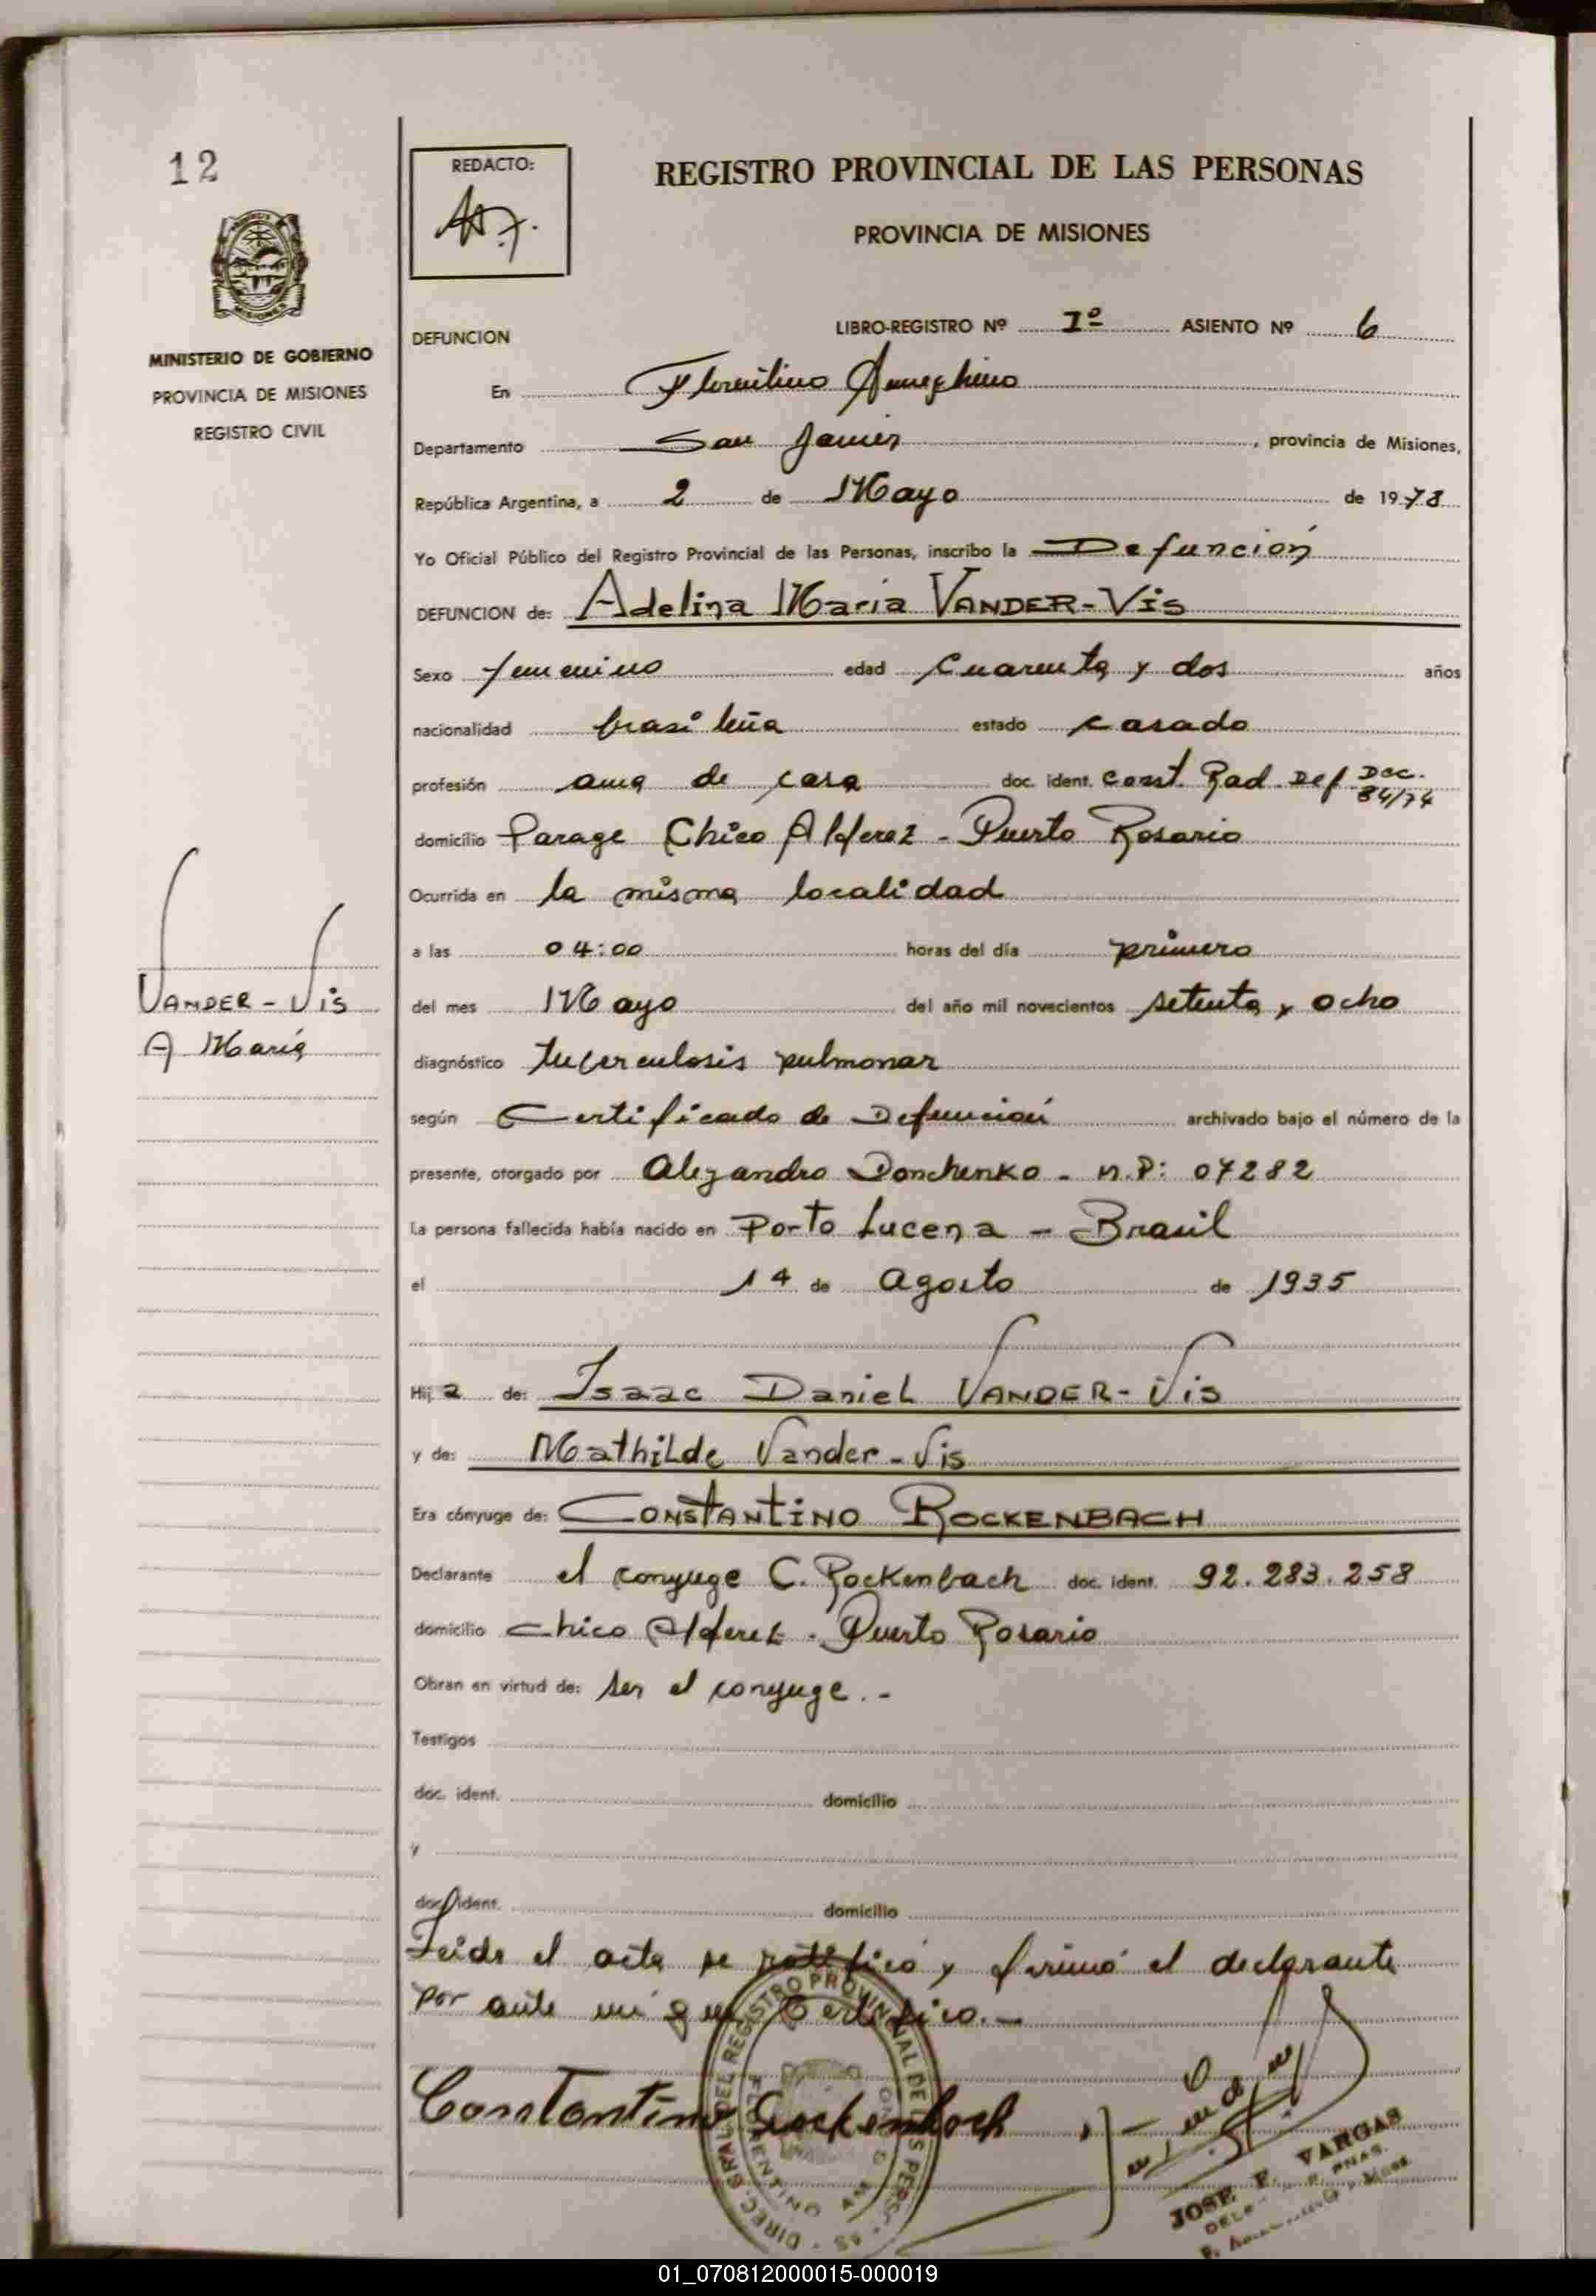 12
REDACTO:
REGISTRO PROVINCIAL DE LAS PERSONAS
PROVINCIA DE MISIONES
MINISTERIO DE GOBIERNO
PROVINCIA DE MISIONES
REGISTRO CIVIL
DEFUNCION LIBRO-REGISTRO Nº Iº ASIENTO Nº 6
En Florentino Ameghino
Departamento San Javier, provincia de Misiones,
República Argentina, a 2 de Mayo de 1978
Yo Oficial Público del Registro Provincial de las Personas, inscribo la Defunción
DEFUNCION de: Adelina Maria VANDER-Vis
Sexo femenino edad Cuarenta y dos años
nacionalidad brasileña estado casado
profesión ama de casa doc. ident. Const. Rad. Def. Doc. 84/74
domicilio Parage Chico Alferez - Puerto Rosario
Ocurrida en la misma localidad
a las 04:00 horas del día primero
VANDER-Vis
A María
del mes Mayo del año mil novecientos setenta y ocho
diagnóstico tuberculosis pulmonar
según Certificado de Defunción archivado bajo el número de la
presente, otorgado por Alejandro Donchenko - M.P: 07282
La persona fallecida había nacido en Porto Lucena - Brasil
el 14 de Agosto de 1935
Hija de: Isaac Daniel VANDER-Vis
y de: Mathilde Vander-Vis
Era cónyuge de: CONSTANTINO ROCKENBACH
Declarante el conyuge C. Rockenbach doc. ident. 92.283.258
domicilio Chico Alferez - Puerto Rosario
Obran en virtud de: ser el conyuge.-
Testigos
doc. ident. domicilio
y
doc. ident. domicilio
Leida el acta se ratificó y firmó el declarante
por ante mi que Certifico.-
Constantino Rockenbach
DIREC. GRAL. DEL REGISTRO PROVINCIAL DE LAS PERS
JOSE F. VARGAS
01_070812000015-000019